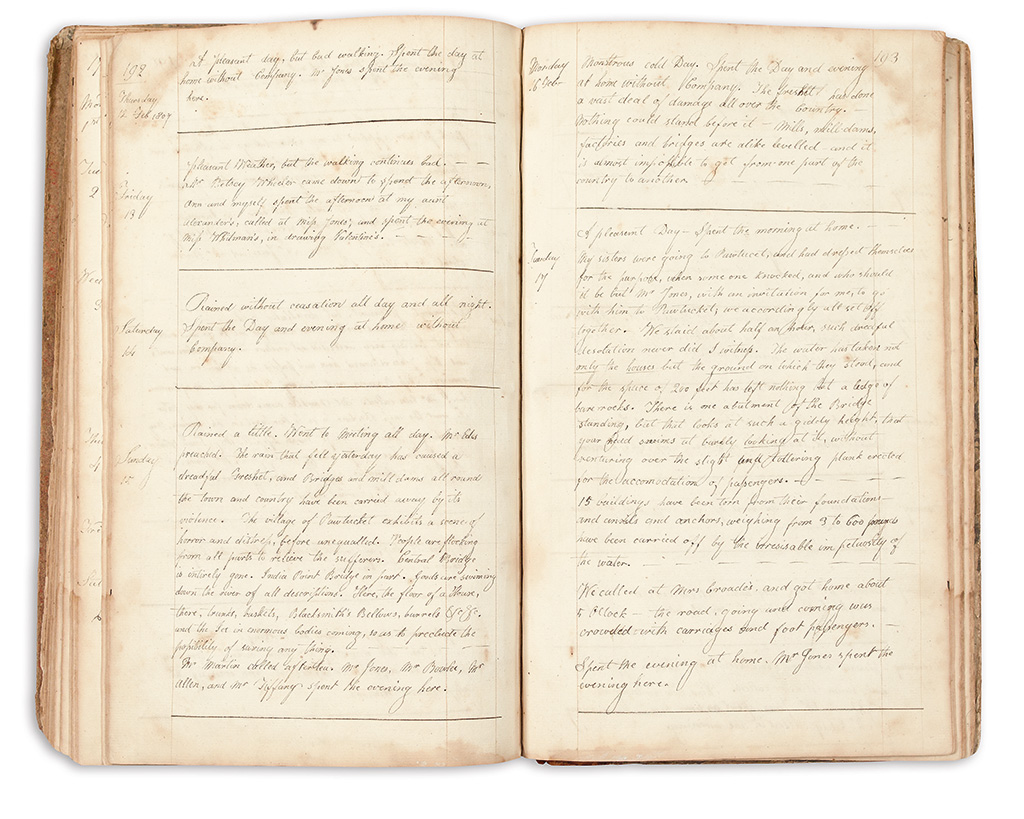 192
Thursday
12 Feb. 1807
A pleasant day, but bad walking. Spent the day at
home without Company. Mr Jones spent the evening
here.
Friday
13
Pleasant Weather, but the walking continues bad. — —
Betsey Wheeler came down to spend the afternoon,
Ann and myself spent the afternoon at my aunt
Alexander's, called at Miss Jones', and spent the evening at
Miss in drawing Valentines. — — — —
Saturday
14
Rained without ceasation all day and all night.
Spent the Day and evening at home without
Company.
Sunday
15
Rained a little. Went to Meeting all day. Mr Edes
preached. The rain that fell yesterday has caused a
dreadful Freshet, and Bridges and mill dams all round
the town and country have been carried away by its
violence. The village of Pawtucket exhibits a scene of
horror and distress, before unequalled. People are flocking
from all parts to relieve the sufferers. Central Bridge
is entirely gone. India Point Bridge in part. Goods are swimming
down the river of all descriptions. Here, the floor of a House,
there, trunks, baskets, Blacksmith's Bellows, barrels &c &c.
and the Ice in enormous bodies coming, so as to preclude the
possibility of saving any thing.
Mr Martin called after tea. Mr Jones, Mr Bowles, Mr
Allen, and Mr Tiffany spent the evening here.
17
Mon
Tue
2
Wed
3
Thu
4
Fri
Sat
193
Monday
16 Feb
Monstrous cold Day. Spent the Day and evening
at home without Company. The freshet has done
a vast deal of damage all over the Country.
Nothing could stand before it — Mills, mill-dams,
factories and bridges are alike levelled and it
is almost impossible to get from one part of the
country to another. — — — —
Tuesday
17
A pleasant Day — Spent the morning at home. —
My sisters were going to Pawtucket, and had dressed themselves
for the purpose, when some one knocked, and who should
it be but Mr Jones, with an invitation for me, to go
with him to Pawtucket, we accordingly all set off
together. We staid about half an hour, such dreadful
desolation never did I witness. The water has taken not
only the houses but the ground on which they stood, and
for the space of 200 feet has left nothing but a ledge of
bare rocks. There is one abutment of the Bridge
standing, but that looks at such a giddy height, that
your head swims at barely looking at it, without
venturing over the slight and tottering plank erected
for the accomodation of passengers. — —
15 buildings have been torn from their foundations —
and anvils and anchors, weighing from 3 to 600 pounds
have been carried off by the irresisable impetuosity of
the water. — — — — — —
We called at Mrs and got home about
5 Oclock — the road, going and coming was
crowded with carriages and foot passengers. —
Spent the evening at home. Mr Jones spent the
evening here.